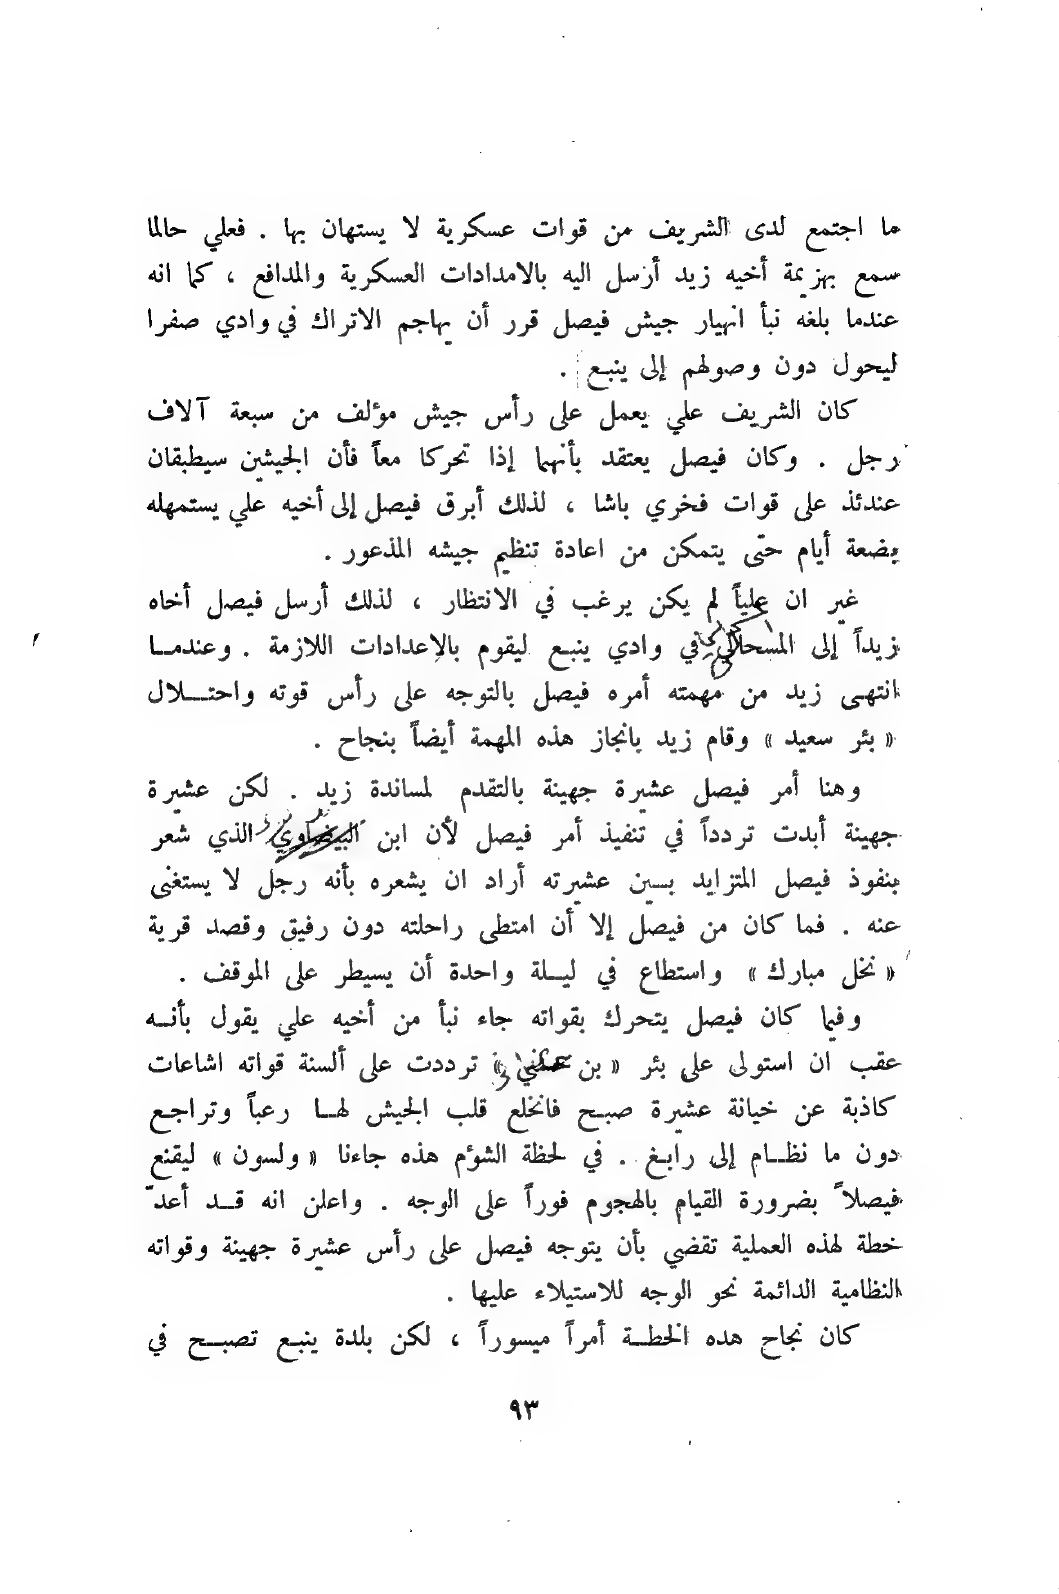 ما اجتمع لدى الشريف من قوات عسكرية لا يستهان بها . فعلي حالما
سمع بهزيمة أخيه زيد أرسل اليه بالامدادات العسكرية والمدافع ، كما انه
عندما بلغه نبأ انهيار جيش فيصل قرر أن يهاجم الاتراك في وادي صفرا
ليحول دون وصولهم إلى ينبع .
كان الشريف علي يعمل على رأس جيش مؤلف من سبعة آلاف
رجل . وكان فيصل يعتقد بأنهما إذا تحركا معاً فأن الجيشين سيطبقان
عندئذ على قوات فخري باشا ، لذلك أبرق فيصل إلى أخيه علي يستمهله
بضعة أيام حتى يتمكن من اعادة تنظيم جيشه المذعور .
غير ان علياً لم يكن يرغب في الانتظار ، لذلك أرسل فيصل أخاه
زيداً إلى المسحلالي في وادي ينبع ليقوم بالإعدادات اللازمة . وعندمـا
انتهى زيد من مهمته أمره فيصل بالتوجه على رأس قوته واحتـلال
« بئر سعيد » وقام زيد بانجاز هذه المهمة أيضاً بنجاح .
وهنا أمر فيصل عشيرة جهينة بالتقدم لمساندة زيد . لكن عشيرة
جهينة أبدت تردداً في تنفيذ أمر فيصل لأن ابن البيضاوي الذي شعر
بنفوذ فيصل المتزايد بـين عشيرته أراد ان يشعره بأنه رجل لا يستغنى
عنه . فما كان من فيصل إلا أن امتطى راحلته دون رفيق وقصد قرية
« نخل مبارك » واستطاع في ليـلة واحدة أن يسيطر على الموقف .
وفيما كان فيصل يتحرك بقواته جاء نبأ من أخيه علي يقول بأنـه
عقب ان استولى على بئر « بن » ترددت على ألسنة قواته اشاعات
كاذبة عن خيانة عشيرة صبح فانخلع قلب الجيش لهـا رعباً وتراجع
دون ما نظـام إلى رابغ . في لحظة الشؤم هذه جاءنا « ولسون » ليقنع
فيصلاً بضرورة القيام بالهجوم فوراً على الوجه . واعلن انه قـد أعدّ
خطة لهذه العملية تقضي بأن يتوجه فيصل على رأس عشيرة جهينة وقواته
النظامية الدائمة نحو الوجه للاستيلاء عليها .
كان نجاح هده الخطـة أمراً ميسوراً ، لكن بلدة ينبع تصبـح في
٩٣